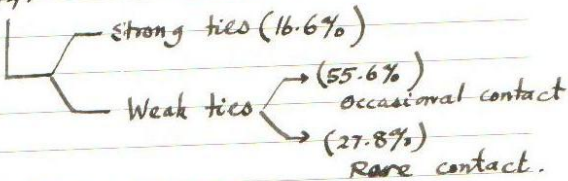 Strong ties (16.6%)
(55.6%)
Weak ties
Occasional contact
(27.8%)
Rare contact.